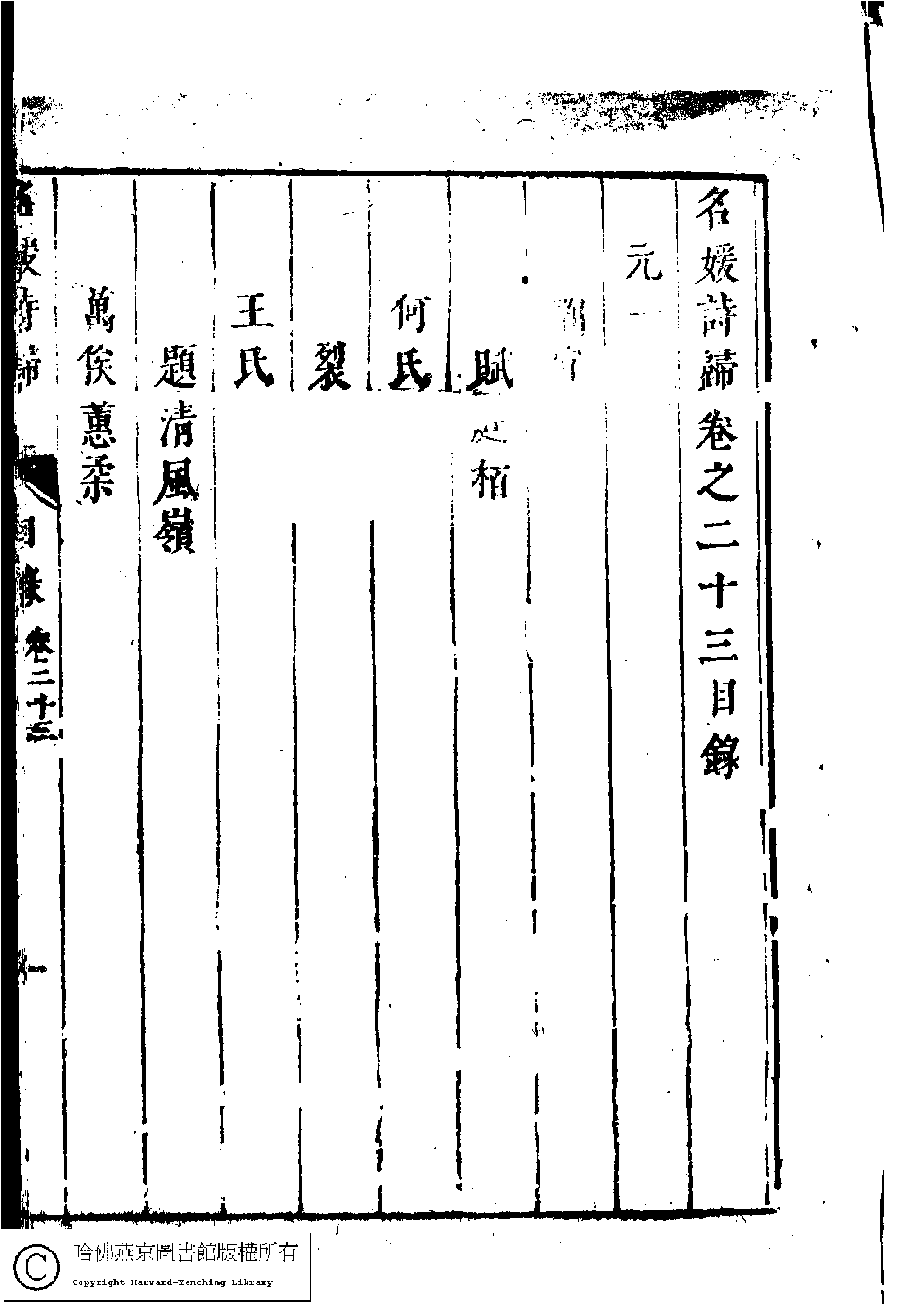 名媛詩歸卷之二十三目錄
元一
賦庭栢
何氏
裂
王氏
題清風嶺
萬俟蕙柔
名媛詩歸
目錄 卷二十三
一
哈佛燕京圖書館版權所有
Copyright Harvard-Yenching Library